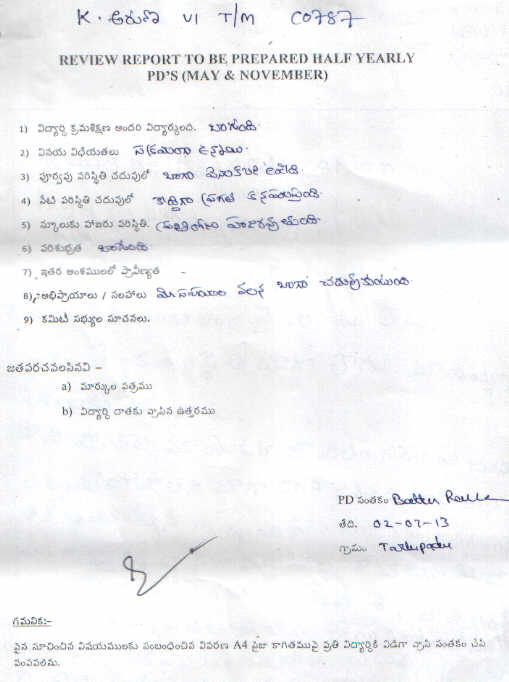 K. అరుణ VI T/M C0787
REVIEW REPORT TO BE PREPARED HALF YEARLY
PD'S (MAY & NOVEMBER)
1) విద్యార్ధి క్రమశిక్షణ అందరి విద్యార్ధులది. బాగుంది.
2) వినయ విధేయతలు సక్రమంగా ఉన్నాయి.
3) పూర్వపు పరిస్థితి చదువులో బాగా వెనుకబడి ఉండెది
4) నేటి పరిస్థితి చదువులో కొద్దిగా ప్రగతి కనపడుతుంది.
5) స్కూలుకు హాజరు పరిస్థితి. ప్రతిరోజు హాజరవుతుంది.
6) పరిశుభ్రత బాగుంటుంది
7) ఇతర అంశములలో ప్రావీణ్యత -
8) అభిప్రాయాలు / సలహాలు మీ సహాయం వలన బాగా చదువుకుంటుంది.
9) కమిటీ సభ్యుల సూచనలు.
జతపరచవలసినవి –
a) మార్కుల పత్రము
b) విద్యార్ధి దాతకు వ్రాసిన ఉత్తరము
PD సంతకం
తేది. 02-07-13
గ్రామం Tarlupadu
గమనిక:-
పైన సూచించిన విషయములకు సంబంధించిన వివరణ A4 సైజు కాగితముపై ప్రతి విద్యార్ధికి విడిగా వ్రాసి సంతకం చేసి
పంపవలెను.